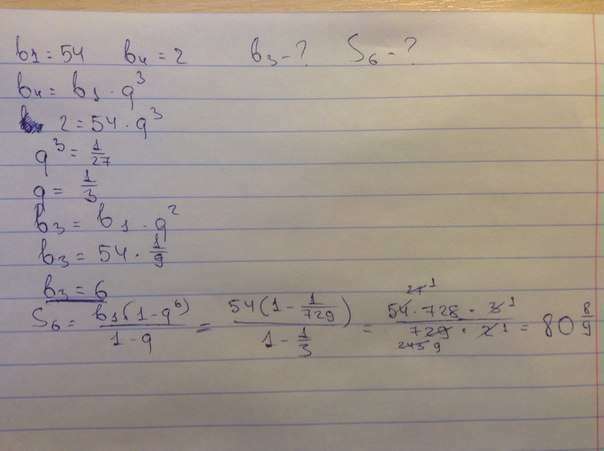 b₁ = 54 b₄ = 2 b₃ - ? S₆ - ?
b₄ = b₁ · q³
2 = 54 · q³
q³ = 1/27
q = 1/3
b₃ = b₁ · q²
b₃ = 54 · 1/9
b₃ = 6
S₆ = b₁(1-q⁶)/(1-q) = 54(1 - 1/729)/(1 - 1/3) = 54 · 728 · 3/(729 · 2) = 80 8/9